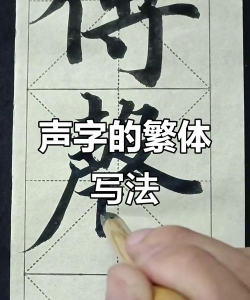 傳
声字的繁体
写法